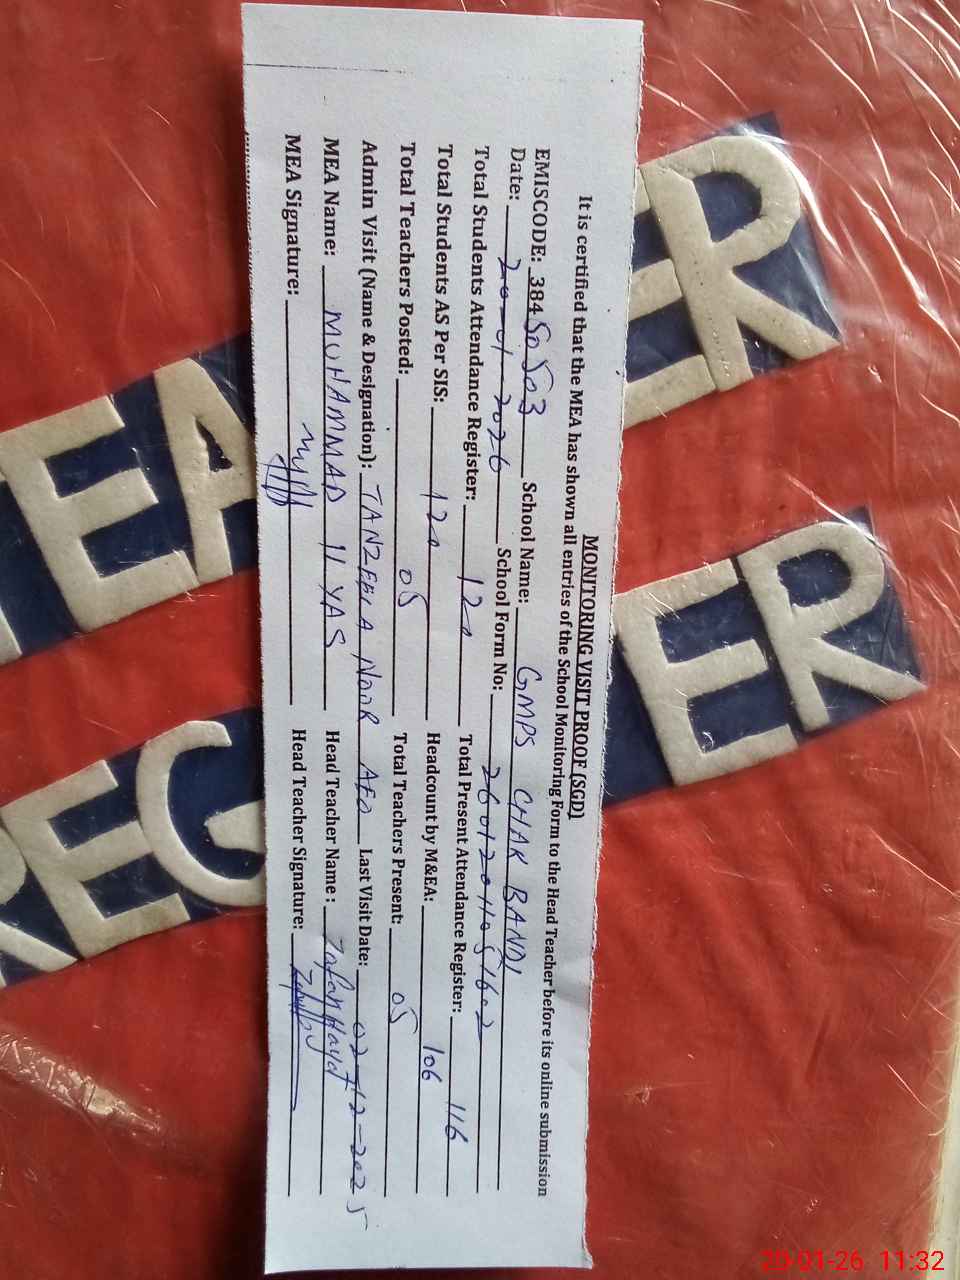 MONITORING VISIT PROOF (SGD)
It is certified that the MEA has shown all entries of the School Monitoring Form to the Head Teacher before its online submission
EMISCODE: 38450503 School Name: GMPS CHAK BANDI
Date: 20-01-2026 School Form No: 26012011051602
Total Students Attendance Register: 120 Total Present Attendance Register: 116
Total Students AS Per SIS: 120 Headcount by M&EA: 106
Total Teachers Posted: 05 Total Teachers Present: 05
Admin Visit (Name & Designation): TANZEELA NOOR AEO Last Visit Date: 02-12-2025
MEA Name: MUHAMMAD ILYAS Head Teacher Name: Zafar Hayat
MEA Signature: Head Teacher Signature:
TEA ER
REG ER
20-01-26 11:32